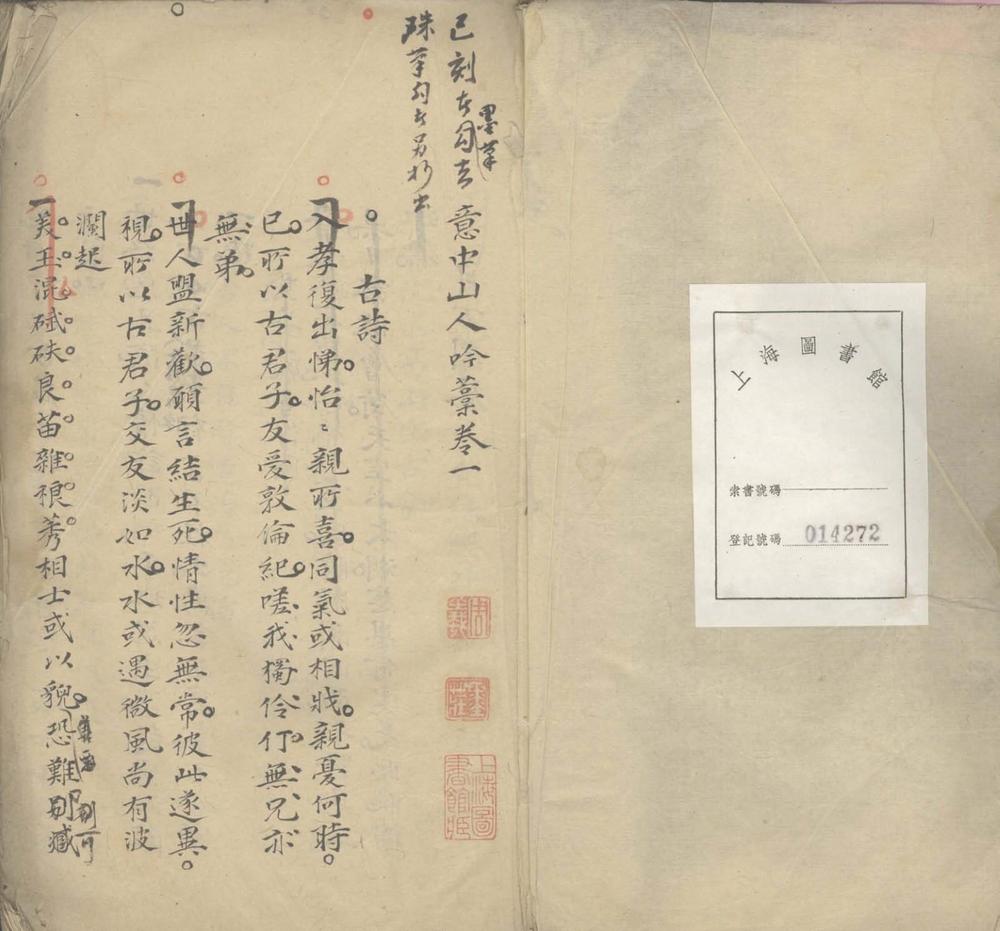 上海圖書館
索書號碼
登記號碼 014272
已刻者勾去
墨筆
硃筆勾者另抄出
意中山人吟藁卷一
上海圖書館藏
古詩
入孝復出悌怡〻親所喜同氣或相戕親憂何時
已所以古君子友愛敦倫紀嗟我獨伶仃無兄亦
無弟
世人盟新歡願言結生死情性忽無常彼此遂異
視所以古君子交友淡如水水或遇微風尚有波
瀾起
美玉混碔砆良苗雜稂莠相士或以貌恐難別臧
別可